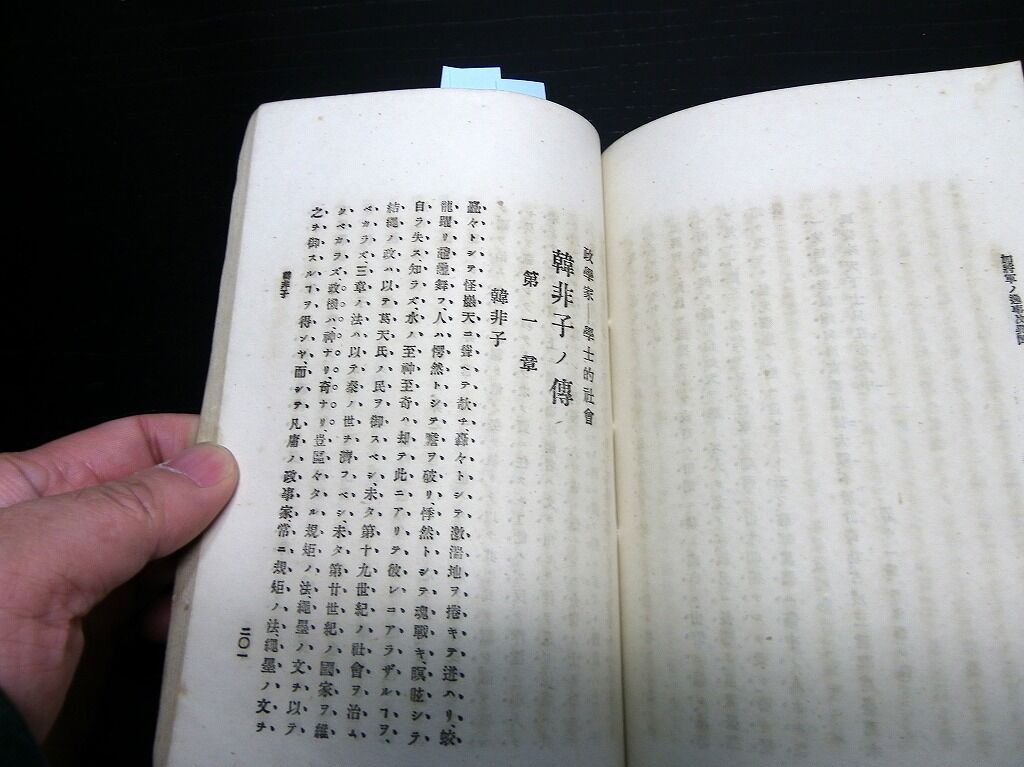 政學家―學士的社會
韓非子ノ傳
第一章
韓非子
矗々トシテ怪巖天ニ聳ヘテ欹チ、轟々トシテ激湍地ヲ捲キテ迸ハリ、蛟
龍躍リ魑魅舞フ、人ハ愕然トシテ膽ヲ破リ、悸然トシテ魂戰キ、瞑眩シテ
自ラ失ス知ラズ、水ノ至神至奇ハ却テ此ニアリテ彼レニアラザルヿヲ、
結繩ノ政ハ以テ葛天氏ノ民ヲ御スベシ、未タ第十九世紀ノ社會ヲ治ム
ベカラズ、三章ノ法ハ以テ秦ノ世ヲ濟フベシ、未タ第廿世紀ノ國家ヲ維
グベカラズ、政機ハ神ナリ奇ナリ、豈區々タル規矩ノ法、繩墨ノ文ヲ以テ
之ヲ御スルヿヲ得ンヤ、而シテ凡庸ノ政事家常ニ規矩ノ法、繩墨ノ文ヲ
韓非子
二〇一